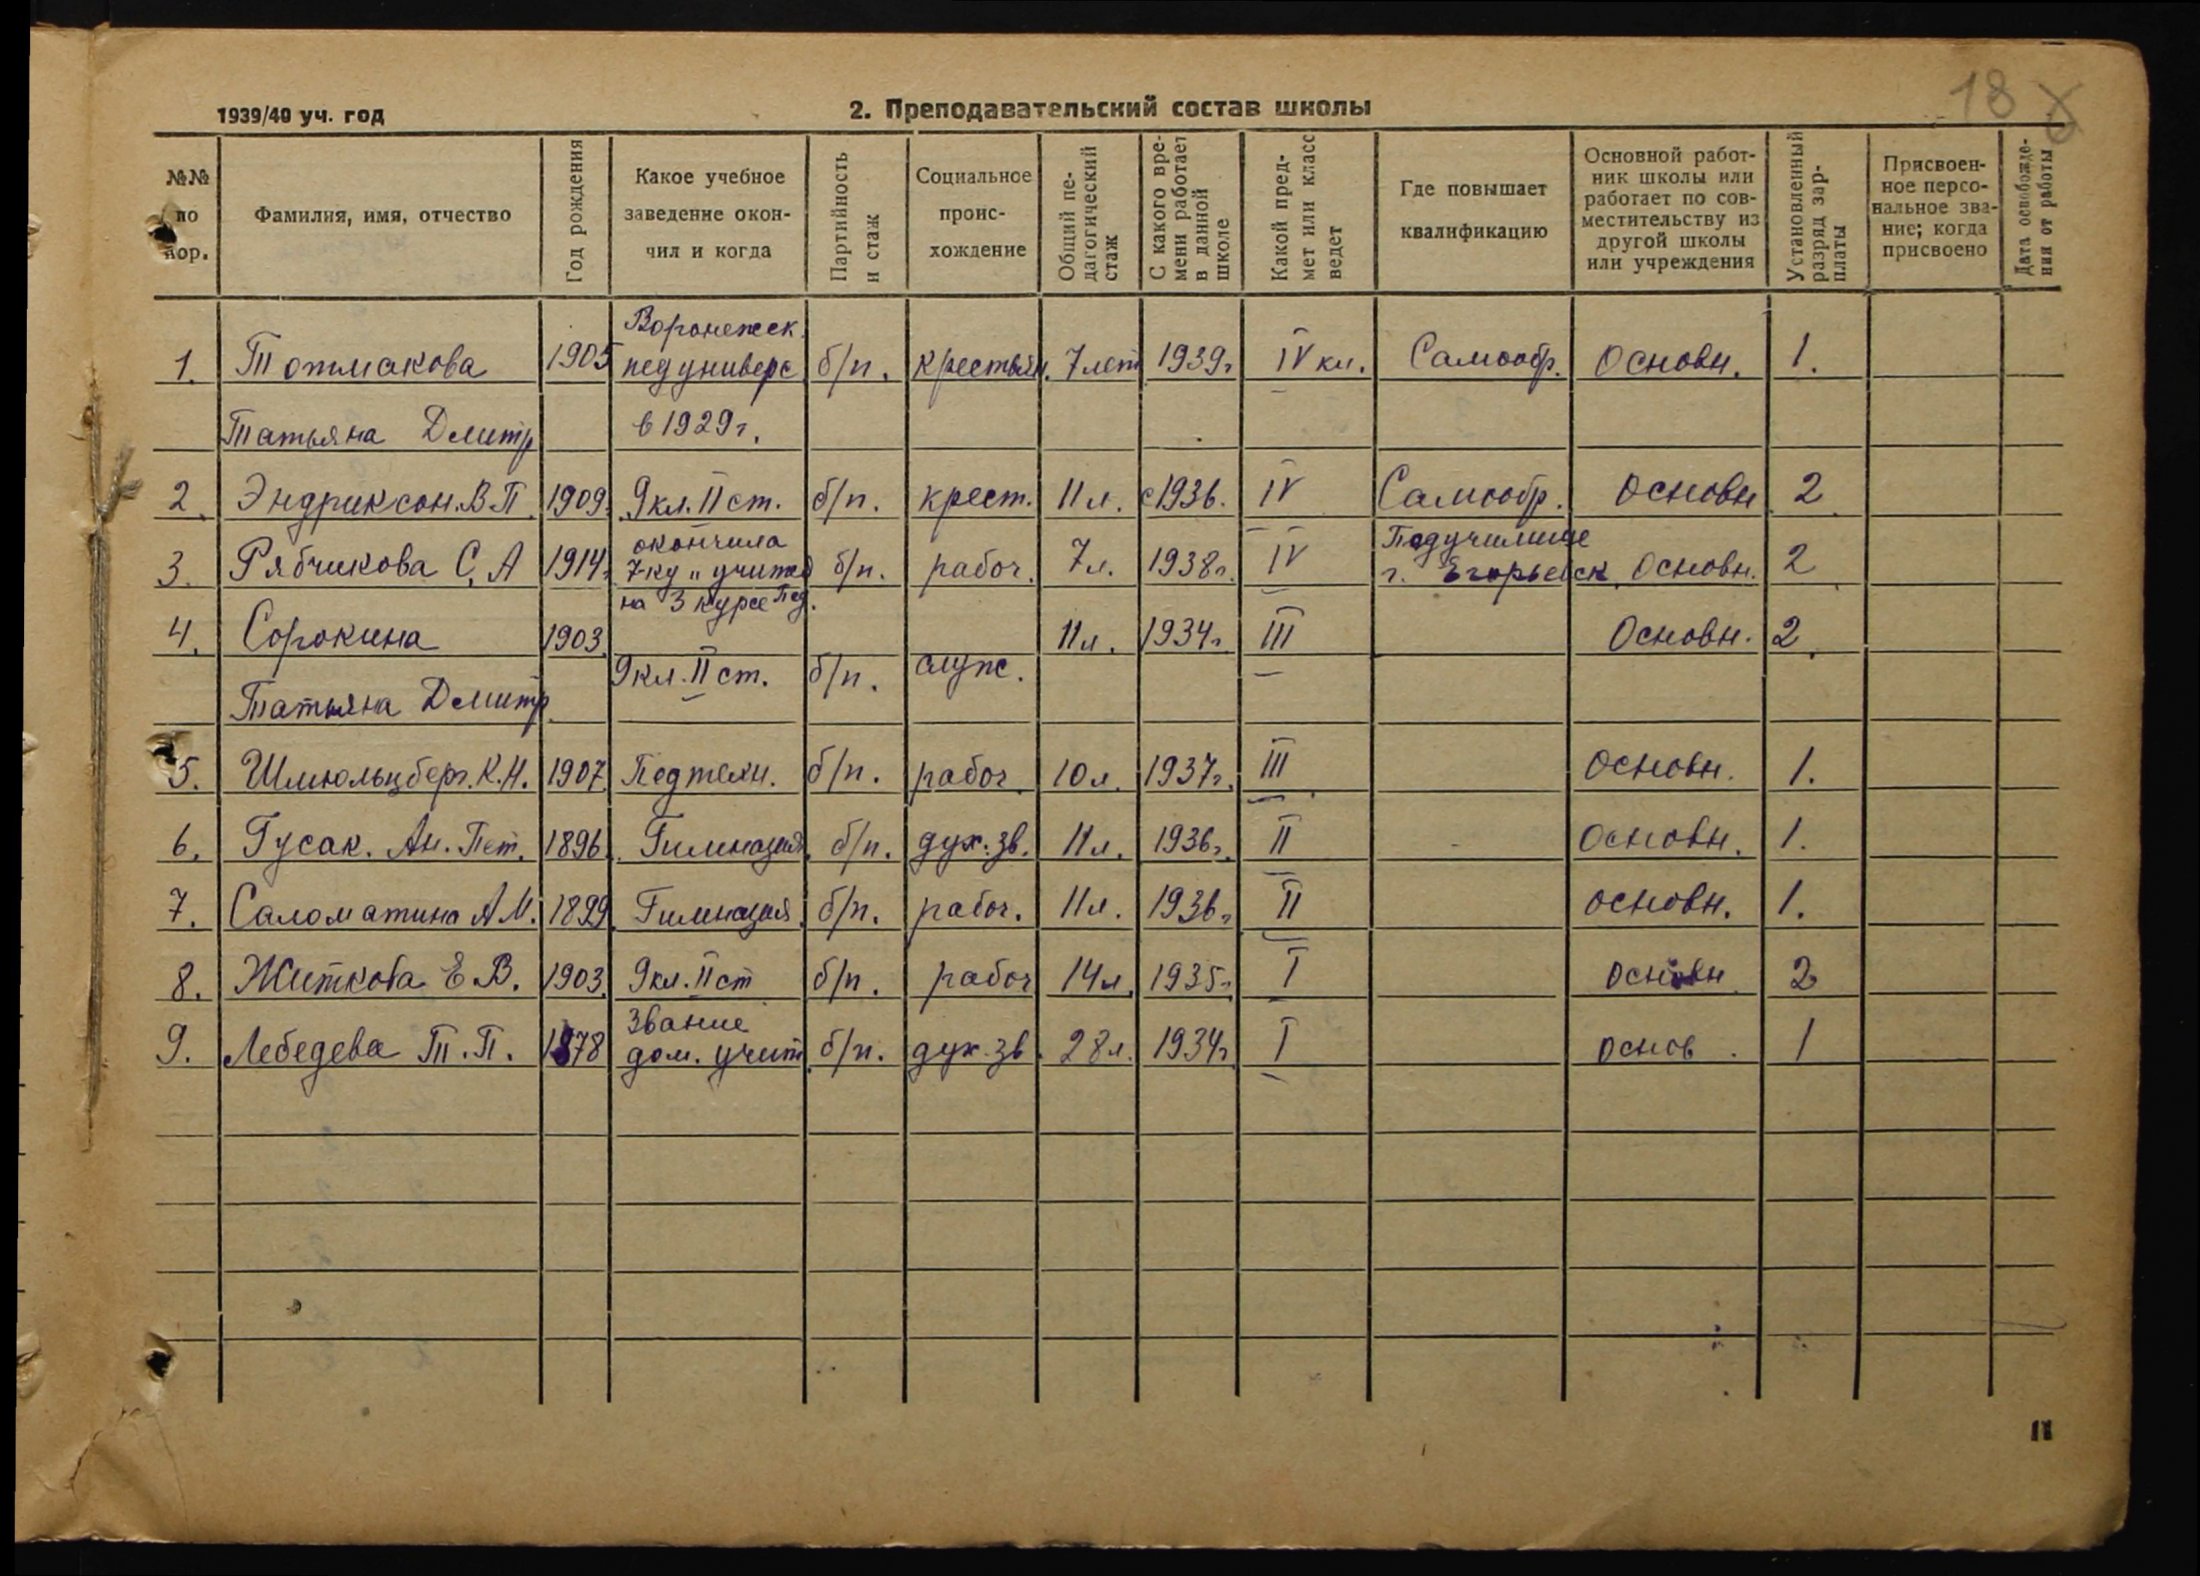 18
1939/40 уч. год
2. Преподавательский состав школы
№№ по пор.
Фамилия, имя, отчество
Год рождения
Какое учебное заведение окончил и когда
Партийность и стаж
Социальное происхождение
Общий педагогический стаж
С какого времени работает в данной школе
Какой предмет или класс ведет
Где повышает квалификацию
Основной работник школы или работает по совместительству из другой школы или учреждения
Установленный разряд зарплаты
Присвоенное персональное звание; когда присвоено
Дата освобождения от работы
Воронежск.
1. Тотмакова 1905 пед универс б/п. крестьян. 7 лет 1939г IV кл. Самообр. Основн. 1.
Татьяна Дмитр в 1929г.
2. Эндриксон. В П. 1909. 9 кл. II ст. б/п. крест. 11 л. с 1936. IV Самообр. Основн 2.
окончила Педучилище
3. Рябчикова С. А 1914. 7-ку и учится б/п. рабоч. 7 л. 1938г. IV г. Егорьевск. Основн. 2.
на 3 курсе Пед.
4. Сорокина 1903. 11 л. 1934г. III Основн. 2.
9 кл. II ст. б/п. служ.
Татьяна Дмитр.
5. Шмюльцберг. К.Н. 1907. Педтехн. б/п. рабоч. 10 л. 1937г. III Основн. 1.
6. Гусак. Ан. Пет. 1896. Гимназия. б/п. дух. зв. 11 л. 1936г. II Основн. 1.
7. Саломатина А М. 1899. Гимназия. б/п. рабоч. 11 л. 1936г II основн. 1.
8. Житкова Е В. 1903. 9 кл. II ст б/п. рабоч 14 л. 1935г I основн. 2
Звание
9. Лебедева Т. П. 1878 дом. учит. б/п. дух. зв. 28 л. 1934г I основ. 1
11